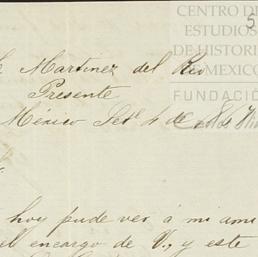 CENTRO DE
ESTUDIOS
DE HISTORI
MEXICO
FUNDACIÓ
5
Martinez del Rio
Presente
México Set.e 4 de
hoy pude ver á mi ami
el encargo de V., y este